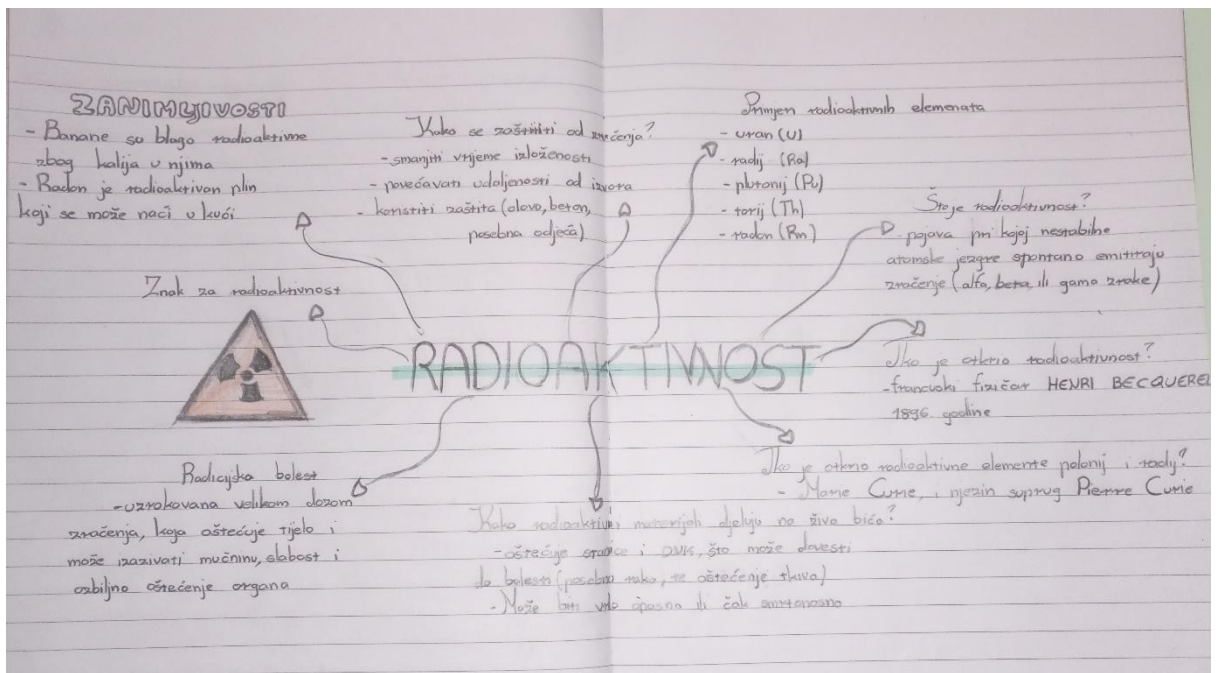 ZANIMLJIVOSTI
- Banane su blago radioaktivne
zbog kalija u njima
- Radon je radioaktivan plin
koji se može naći u kući
Kako se zaštititi od zračenja?
- smanjiti vrijeme izloženosti
- povećavati udaljenosti od izvora
- koristiti zaštita (olovo, beton,
posebna odjeća)
Primjen radioaktivnih elemenata
- uran (U)
- radij (Ra)
- plutonij (Pu)
- torij (Th)
- radon (Rn)
Što je radioaktivnost?
pojava pri kojoj nestabilne
atomske jezgre spontano emitiraju
zračenje (alfa, beta, ili gama zrake)
Znak za radioaktivnost
RADIOAKTIVNOST
Tko je otkrio radioaktivnost?
- francuski fizičar HENRI BECQUEREL
1896. godine
Tko je otkrio radioaktivne elemente polonij i radij?
- Marie Curie, i njezin suprug Pierre Curie
Radicijska bolest
- uzrokovana velikom dozom
zračenja, koja oštećuje tijelo i
može izazivati mučninu, slabost i
ozbiljno oštećenje organa
Kako radioaktivni materijali djeluju na živa bića?
- oštećuje stanice i DNK, što može dovesti
do bolesti (posebno raka, te oštećenje tkiva)
- Može biti vrlo opasno ili čak smrtonosno